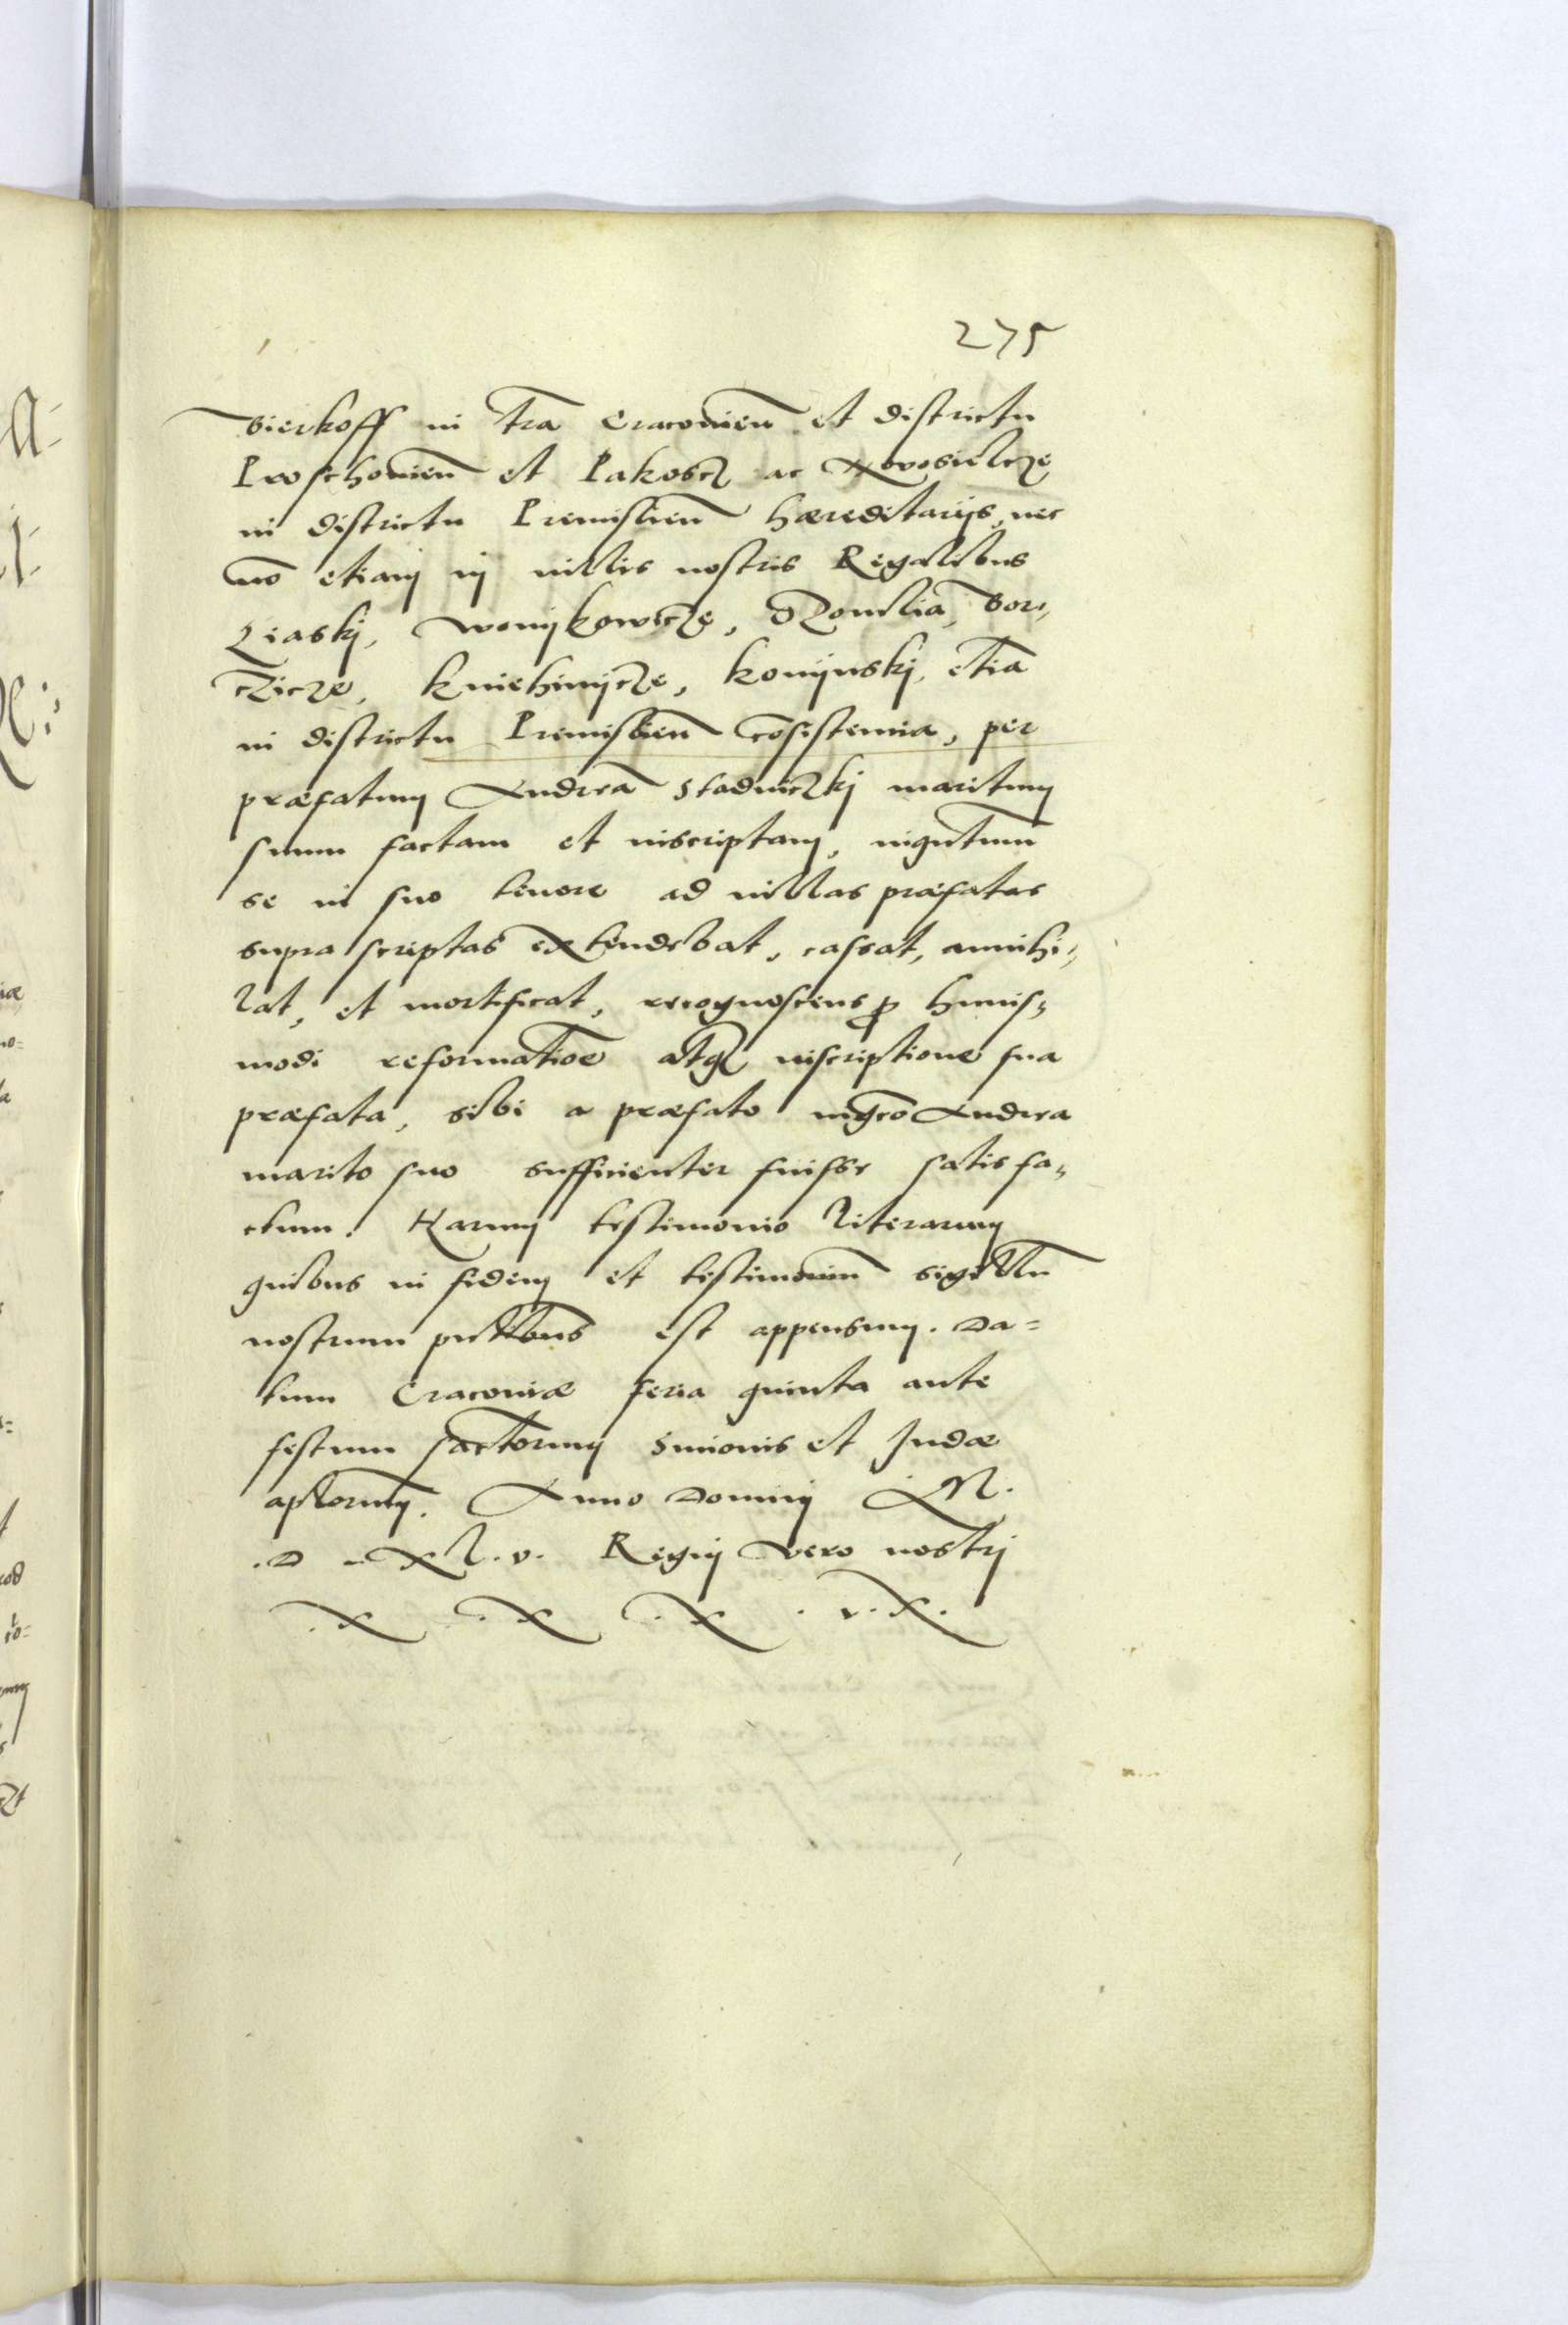 275
Sierkoff in tra Cracovien et districtu
Proschovien et Pakoscz ac Novosielcze
in districtu Premislien hæreditarijs, nec
no etiam in villis nostris Regalibus
Liaski, Wonijkowcze, Szomlia, Bor,,
czicze, Kniehinijcze, Konijuski, etia
in districtu Premislien cosistentia, per
præfatum Andrea Stadniczki maritum
suum factam et inscriptam, inqutum
se in suo tenore ad villas præfatas
supra scriptas extendebat, cassat, annihi,,
lat, et mortificat, recognoscens p huius,,
modi reformatioe atq inscriptione sua
præfata, sibi a præfato mgco Andrea
marito suo sufficienter fuisse satisfa,,
ctum. Harum testimonio literarum
quibus in fidem et testimonium sigillu
nostrum pntibus est appensum. Da=
tum Cracoviæ feria quinta ante
festum sactorum Simonis et Judæ
aplorum. Anno Domini M.
.D. XL.v. Regni vero nostri
.X .X .X . v.X.